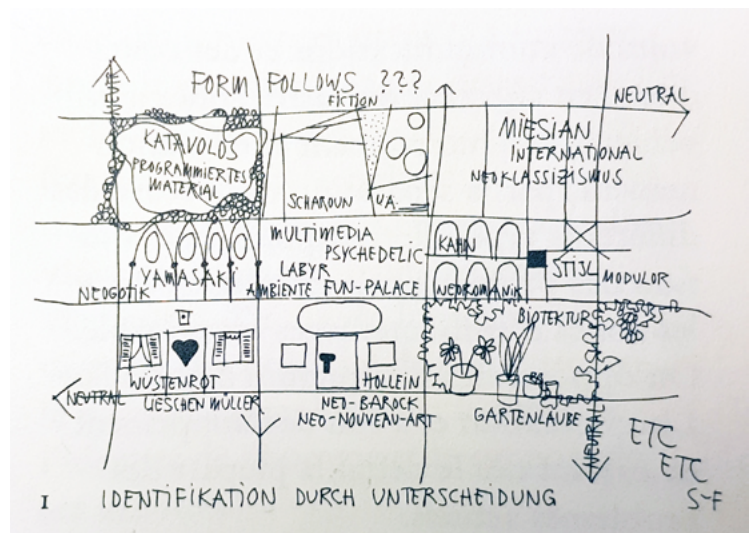 FORM FOLLOWS ???
FICTION
NEUTR
NEUTRAL
KATAVOLOS
PROGRAMMIERTES
MATERIAL
SCHAROUN U.A.
MIESIAN
INTERNATIONAL
NEOKLASSIZISMUS
YAMASAKI
NEOGOTIK
MULTIMEDIA
PSYCHEDELIC
LABYR
AMBIENTE FUN-PALACE
KAHN
NEOROMANIK
STIJL
MODULOR
WÜSTENROT
LIESCHEN MÜLLER
NEUTRAL
HOLLEIN
NEO-BAROCK
NEO-NOUVEAU-ART
BIOTEKTUR
GARTENLAUBE
NEUTRAL
ETC
ETC
S-F
I IDENTIFIKATION DURCH UNTERSCHEIDUNG